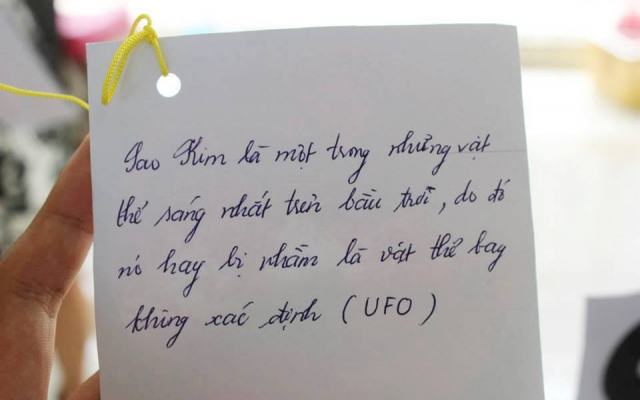 Sao Kim là một trong những vật
thể sáng nhất trên bầu trời, do đó
nó hay bị nhầm là vật thể bay
không xác định (UFO)